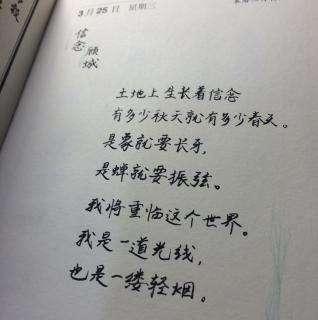 3月25日 星期三
信念
顾城
土地上生长着信念
有多少秋天就有多少春天。
是象就要长牙,
是蝉就要振弦。
我将重临这个世界。
我是一道光线,
也是一缕轻烟。